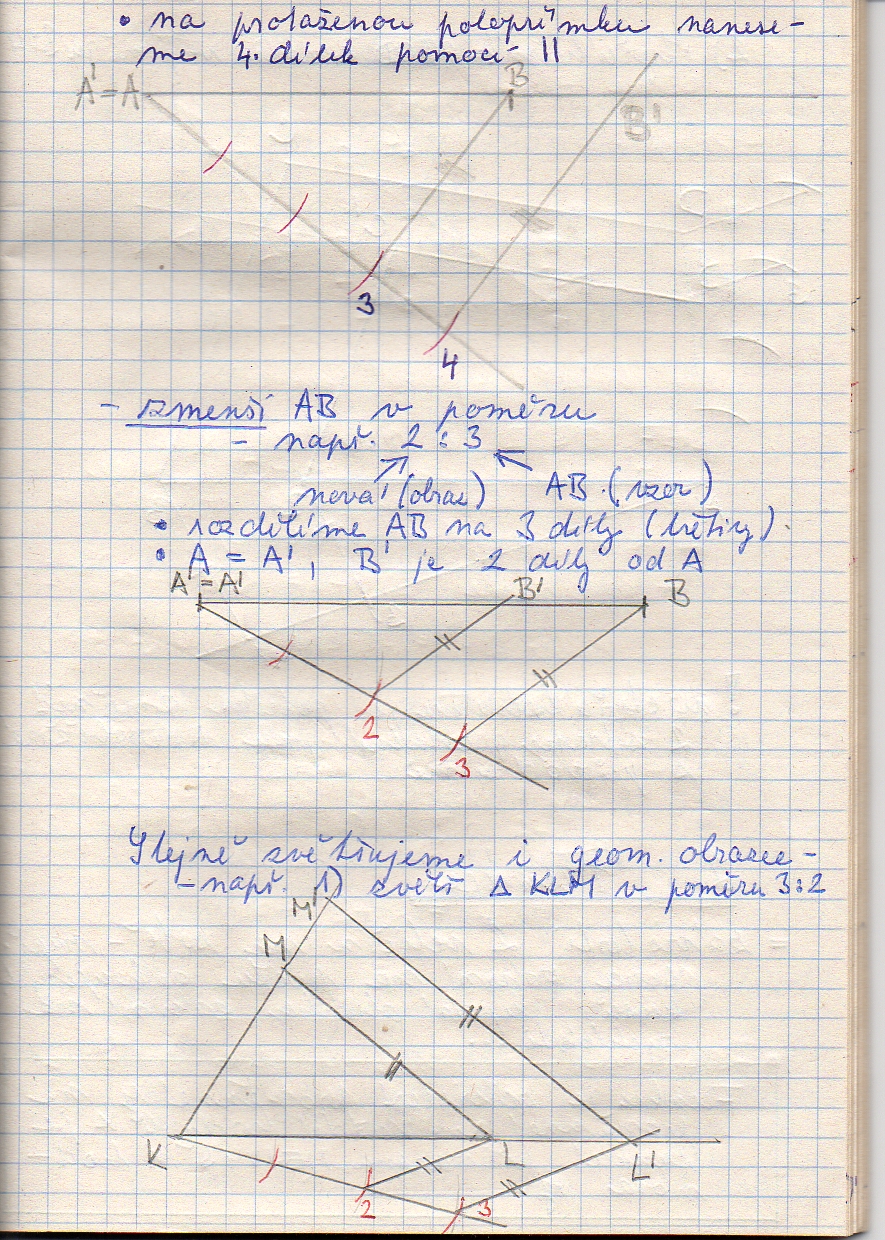 • na protaženou polopřímku nanese-
me 4. dílek pomocí ||
A'=A B B'
3
4
- zmenši AB v poměru
- např. 2 : 3
nová (obraz) AB (vzor)
• rozdělíme AB na 3 díly (třetiny).
• A = A', B' je 2 díly od A
A'=A' B' B
2
3
Stejně zvětšujeme i geom. obrazce -
- např. 1) zvětš Δ KLM v poměru 3:2
M'
M
K L L'
2 3